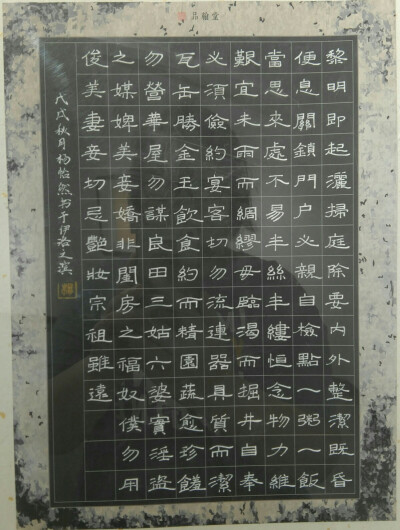 品翰堂
黎明即起灑掃庭除要内外整潔既昏
便息關鎖門户必親自檢點一粥一飯
當思來處不易半絲半縷恒念物力維
艱宜未雨而綢繆毋臨渴而掘井自奉
必須儉約宴客切勿流連器具質而潔
瓦缶勝金玉飲食約而精園蔬愈珍饈
勿營華屋勿謀良田三姑六婆實淫盗
之媒婢美妾嬌非閨房之福奴僕勿用
俊美妻妾切忌艷妝宗祖雖遠
戊戌秋月杨怡然书于伊洛之滨